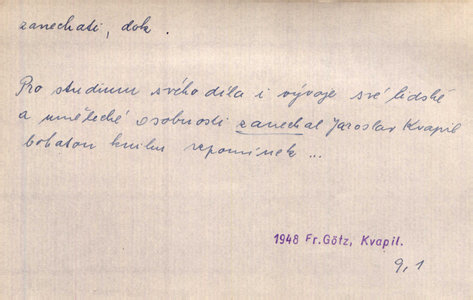 zanechati, dok.
Pro studium svého díla i vývoje své lidské
a umělecké osobnosti zanechal Jaroslav Kvapil
bohatou knihu vzpomínek ...
1948 Fr.Götz, Kvapil.
9,1